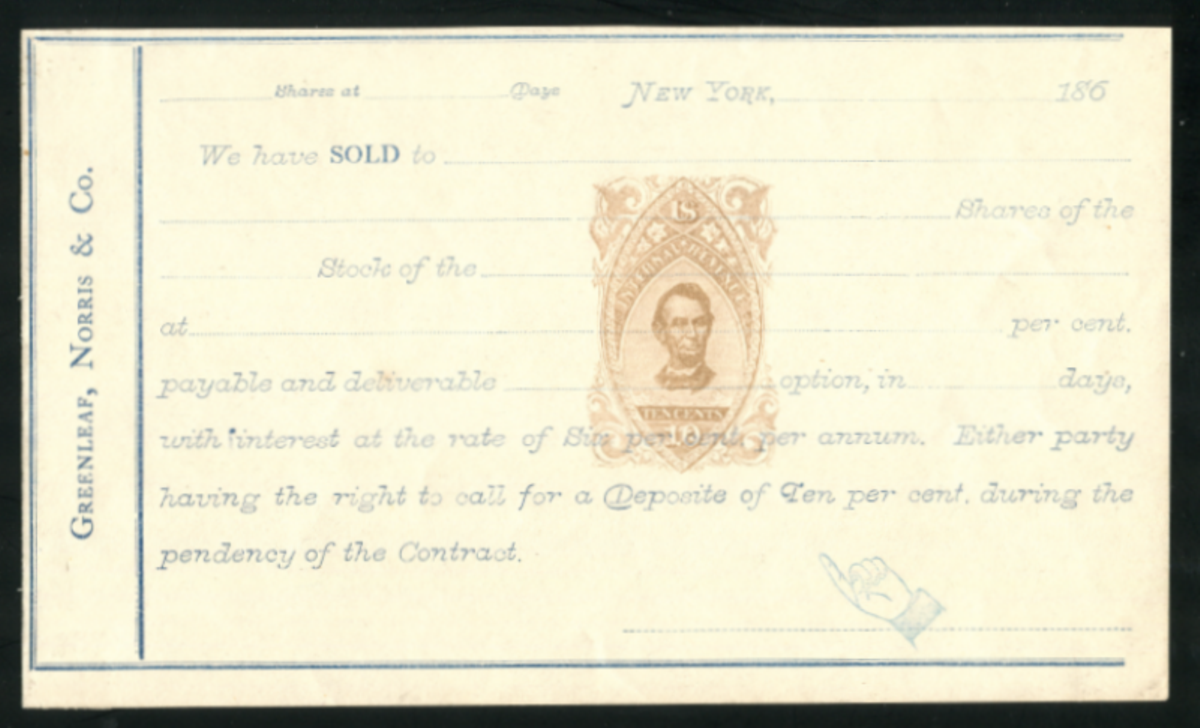 GREENLEAF, NORRIS & CO.
Shares at Days NEW YORK, 186
We have SOLD to
Shares of the
Stock of the
at per cent.
payable and deliverable option, in days,
with interest at the rate of Six per cent per annum. Either party
having the right to call for a Deposite of Ten per cent. during the
pendency of the Contract.
US
INTERNAL REVENUE
TEN CENTS
10